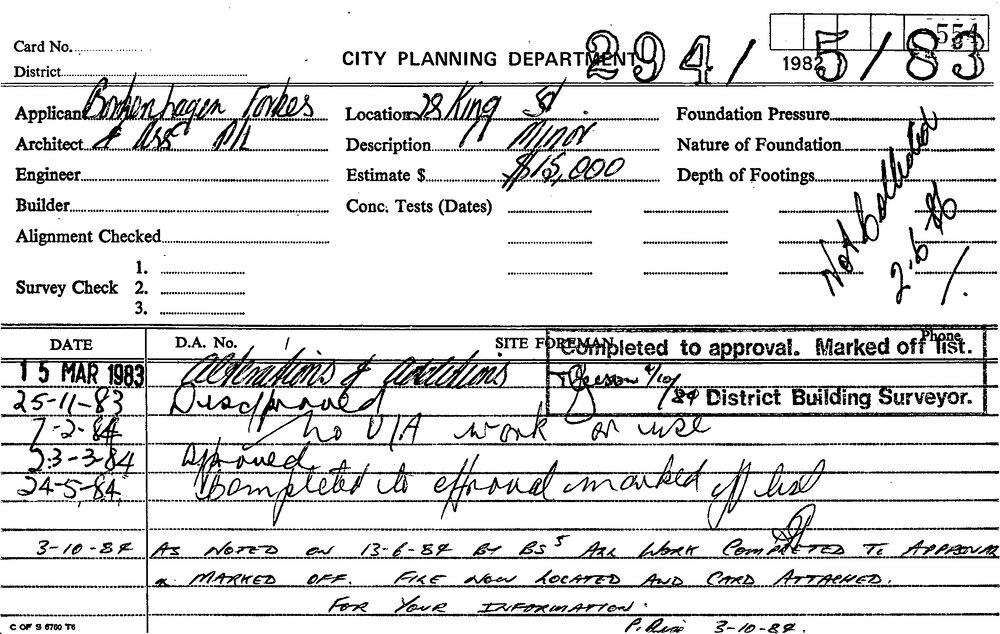 Card No.
554
CITY PLANNING DEPARTMENT 294/5/83
1982
District
Applicant Borkenhagen Forbes Location 28 King St Foundation Pressure
Architect & Assc P/L Description Minor Nature of Foundation
Engineer Estimate $ $15,000 Depth of Footings
Builder Conc. Tests (Dates)
Not Collected
2.6.86
Alignment Checked
1.
Survey Check 2.
3.
DATE D.A. No. SITE FOREMAN Phone
Completed to approval. Marked off list.
15 MAR 1983 Alterations & additions
4/10/84 District Building Surveyor.
25-11-83 Disapproved
7-2-84 no U/A work or use
23-3-84 approved
24-5-84 Completed to approval marked off list
3-10-84 AS NOTED ON 13-6-84 BY BS5 ALL WORK COMPLETED TO APPROVAL
& MARKED OFF. FILE NOW LOCATED AND CARD ATTACHED.
FOR YOUR INFORMATION.
C OF S 6760 T6
3-10-84.